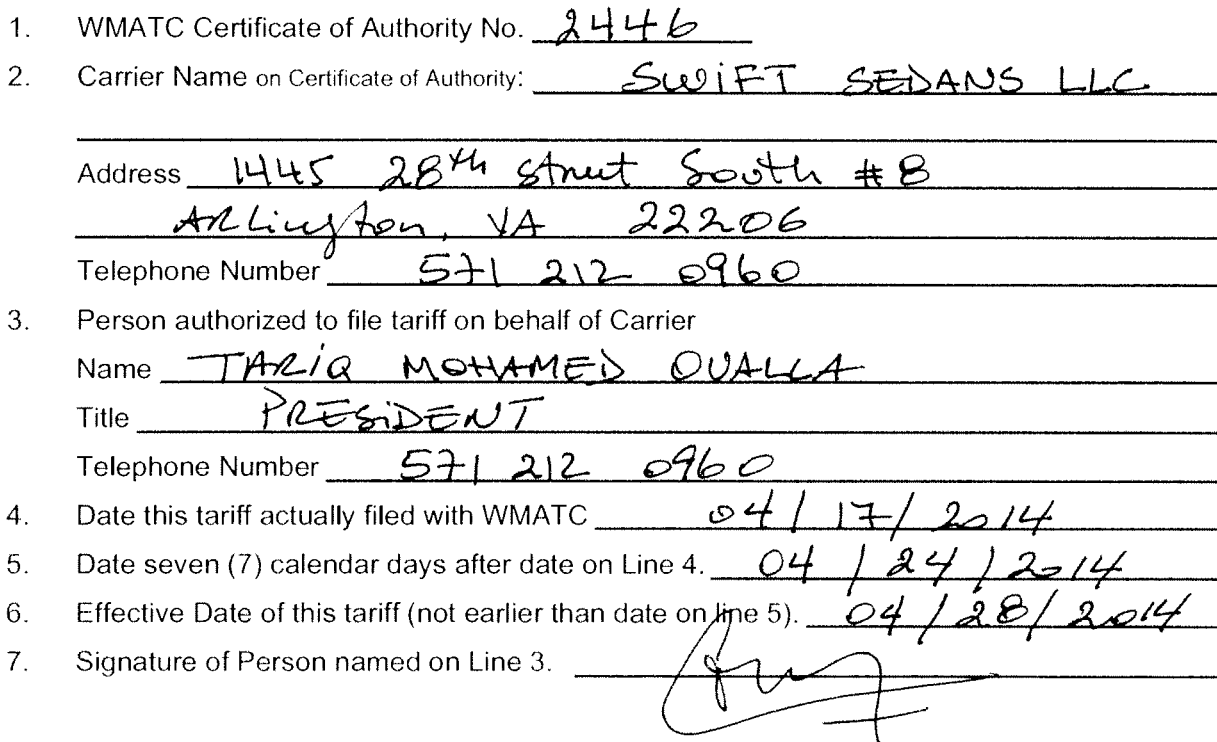 1. WMATC Certificate of Authority No. 2446
2. Carrier Name on Certificate of Authority: SWIFT SEDANS LLC
Address 1445 28th street South # 8
ARLington, VA 22206
Telephone Number 571 212 0960
3. Person authorized to file tariff on behalf of Carrier
Name TARIQ MOHAMED OUALLA
Title PRESIDENT
Telephone Number 571 212 0960
4. Date this tariff actually filed with WMATC 04/17/2014
5. Date seven (7) calendar days after date on Line 4. 04/24/2014
6. Effective Date of this tariff (not earlier than date on line 5). 04/28/2014
7. Signature of Person named on Line 3.